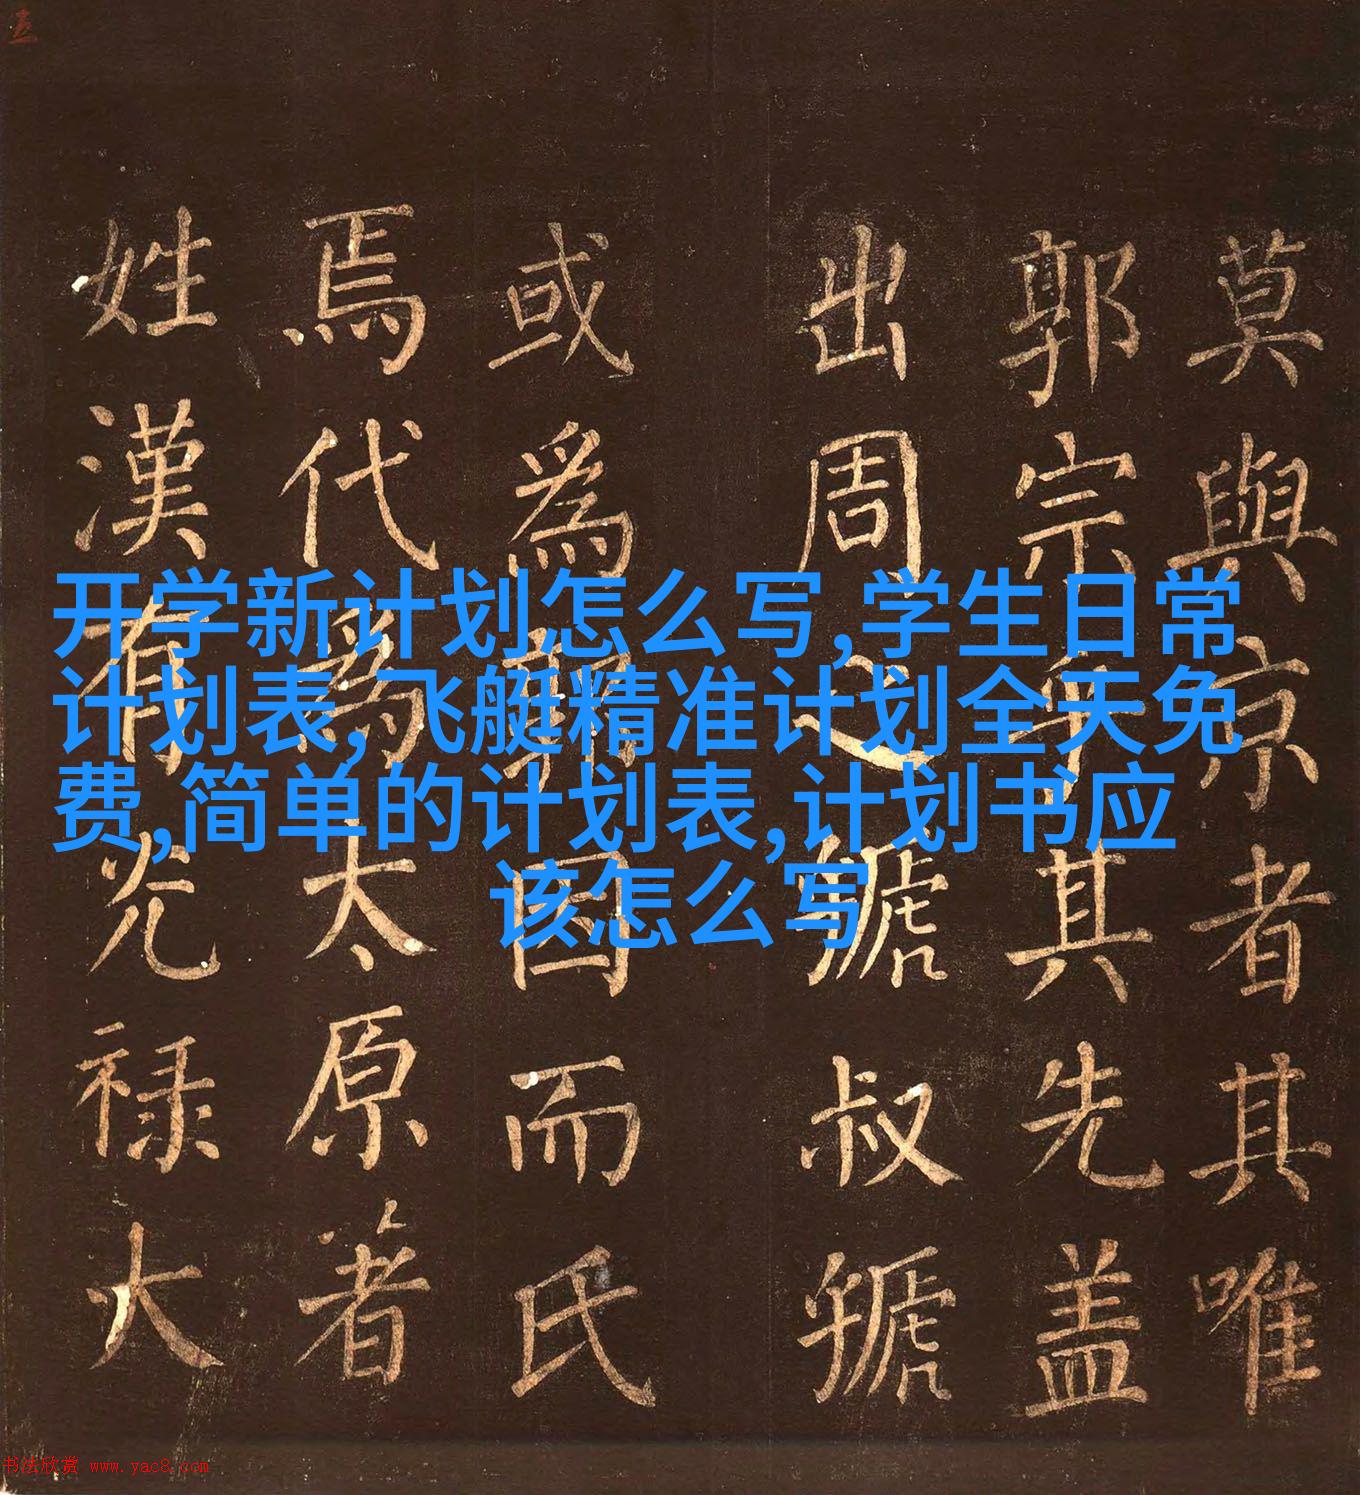 莫與京者其唯
郭宗乎其先盖
出周之虢叔虢
或為郭因而氏
焉代為太原著
姓漢有光禄大
开学新计划怎么写,学生日常
计划表,飞艇精准计划全天免
费,简单的计划表,计划书应
该怎么写
书法欣赏 www.yac8.com